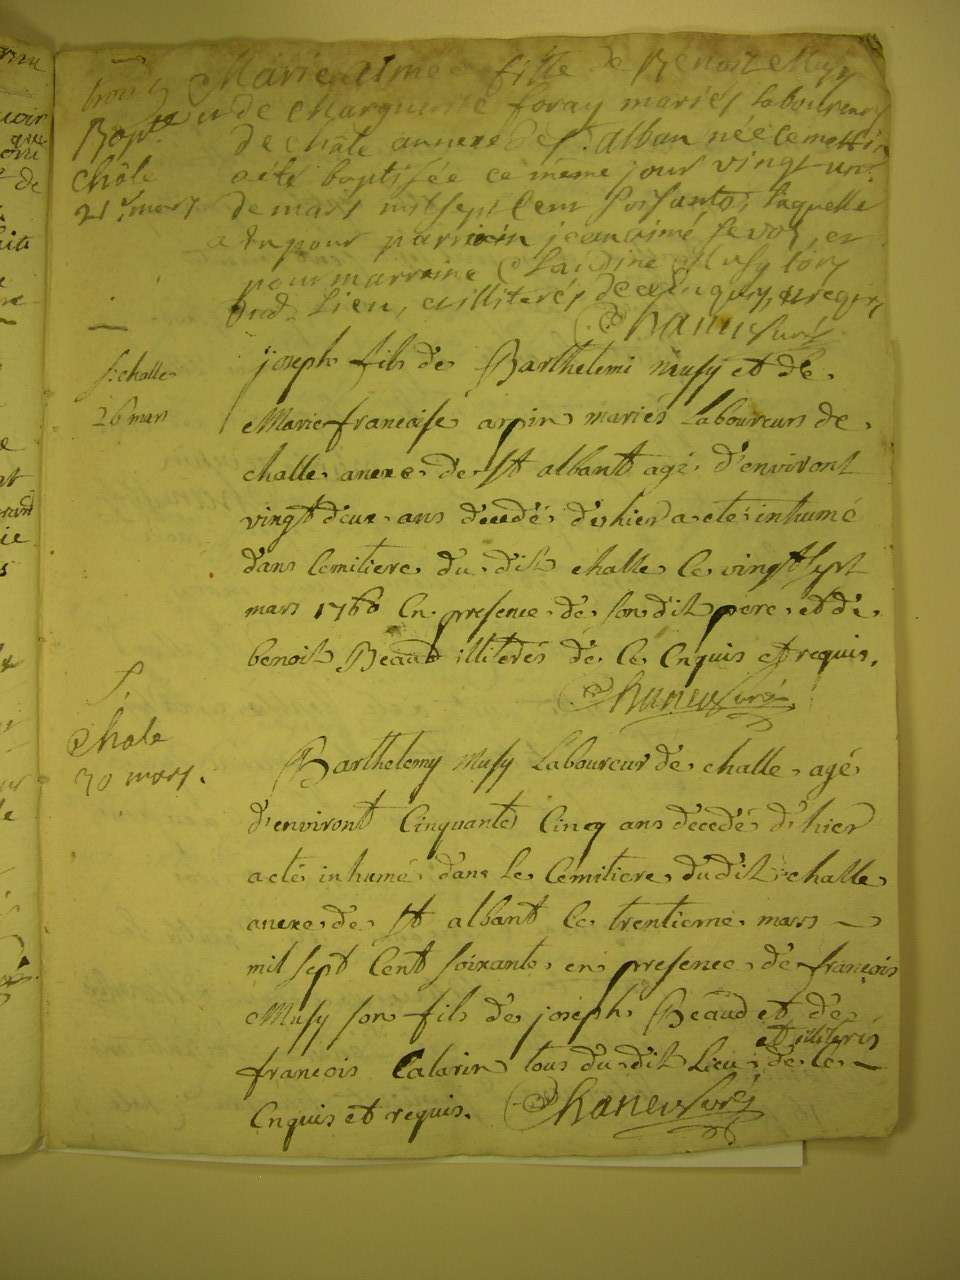 Bapte
châle
21e mars
Marie aimée fille de Benoit Musy
et de Marguerite foray mariés Laboureurs
de châle annexe de St. alban née ce matin
a été baptisée ce même jour vingt un
de mars mil sept cent soisante, laquelle
a eu pour parrain jean aimé
pour marraine Claudine Musy tous
dud. Lieu, illiterés de ce enquis, et requis,
Chanen Curé
s: challe
26 mars
joseph fils de Barthelemi Musy et de
Marie francoise arpin mariés Laboureurs de
challe anexe de St albant agé d'environt
vingt deux ans decedé d'hier a eté inhumé
dans Cemitiere du dit challe le vingt Sept
mars 1760 En presence de son dit pere et de
benoit Beaud illiterés de Ce Enquis et requis.
Chanen Curé
S.
Châle
30 mars.
Barthelemy Musy Laboureur de challe agé
d'environt Cinquante Cincq ans decedé d'hier
a eté inhumé dans le Cemitiere du dit challe
anexe de St albant le trentieme mars
mil sept Cent soixante en presence de françois
Musy son fils de joseph Beaud et de
et illiterés
francois Calarin tous du dit Lieu de Ce
Enquis et requis. Chanen Curé